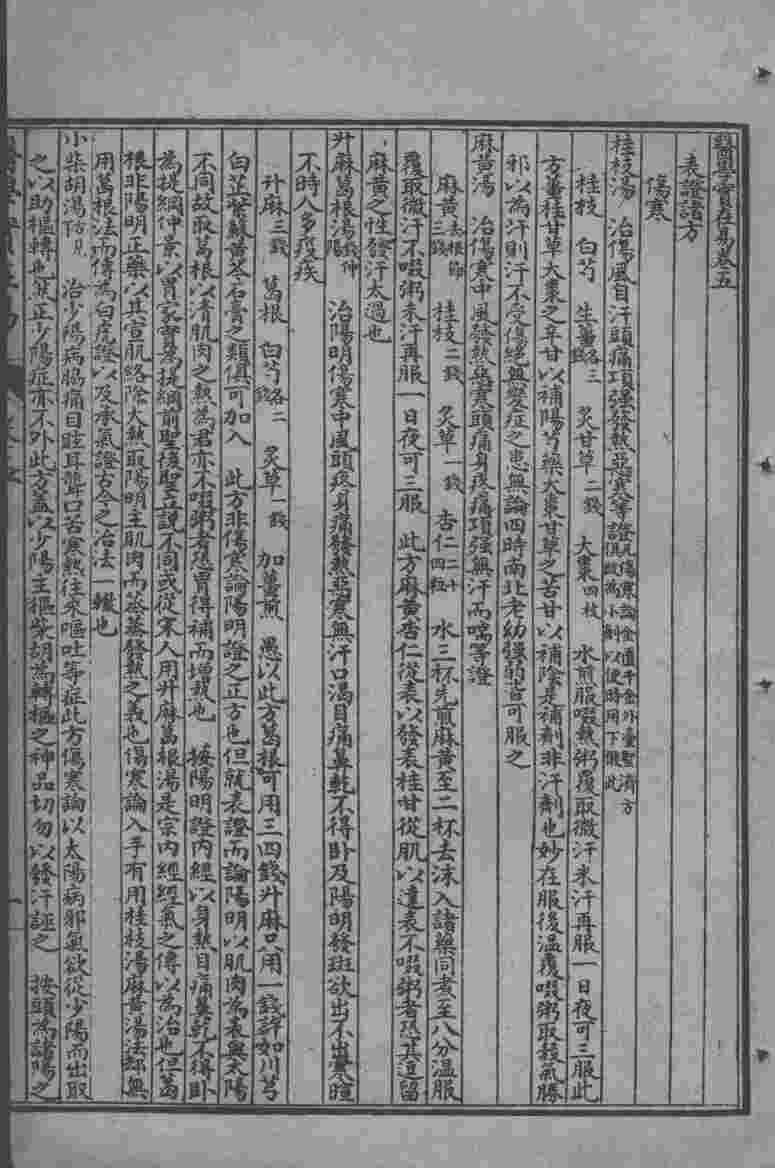 醫學實在易卷五
表證諸方
傷寒
桂枝湯　治傷風自汗頭痛項强發熱惡寒等證凡傷寒論金匱千金外臺聖濟方俱啟為小劑以便時用下倣此
桂枝　白芍　生薑各三錢　炙甘草二錢　大棗四枚　水煎服啜熱粥覆取微汗未汗再服一日夜可三服此
方薑桂甘草大棗之辛甘以補陽芍藥大棗甘草之苦甘以補陰是補劑非汗劑也妙在服後温覆啜粥取穀氣勝
邪以為汗則汗不受傷絕無變症之患無論四時南北老幼强弱皆可服之
麻黃湯　治傷寒中風發熱惡寒頭痛身疼痛項强無汗而喘等證
麻黃去根節三錢　桂枝二錢　炙草一錢　杏仁二十四粒　水三杯先煎麻黃至二杯去沫入諸藥同煮至八分温服
覆取微汗不啜粥未汗再服一日夜可三服　此方麻黃杏仁從表以發表桂甘從肌以達表不啜粥者恐其逗留
麻黃之性發汗太過也
升麻葛根湯錢仲陽　治陽明傷寒中風頭疼身痛發熱惡寒無汗口渴目痛鼻乾不得卧及陽明發斑欲出不出寒暄
不時人多疫疾
升麻三錢　葛根　白芍各二錢　炙草一錢　加薑煎　愚以此方葛根可用三四錢升麻只用一錢許如川芎
白芷紫蘇黃芩石膏之類俱可加入　此方非傷寒論陽明證之正方也但就表證而論陽明以肌肉為表與太陽
不同故取葛根以清肌肉之熱為君亦不啜粥者恐胃得補而增熱也　按陽明證內經以身熱目痛鼻乾不得卧
為提綱仲景以胃家實為提綱前聖後聖立說不同或從宋人用升麻葛根湯是宗內經經氣之傳以為治也但葛
根非陽明正藥以其宣肌絡除大熱取陽明主肌肉而蒸蒸發熱之義也傷寒論入手有用桂枝湯麻黃湯法却無
用葛根法而傳為白虎證以及承氣證古今之治法一轍也
小柴胡湯方見　治少陽病脇痛目眩耳聾口苦寒熱往來嘔吐等症此方傷寒論以太陽病邪氣欲從少陽而出取
之以助樞轉也然正少陽症亦不外此方蓋以少陽主樞柴胡為轉樞之神品切勿以發汗誣之　按頭為諸陽之